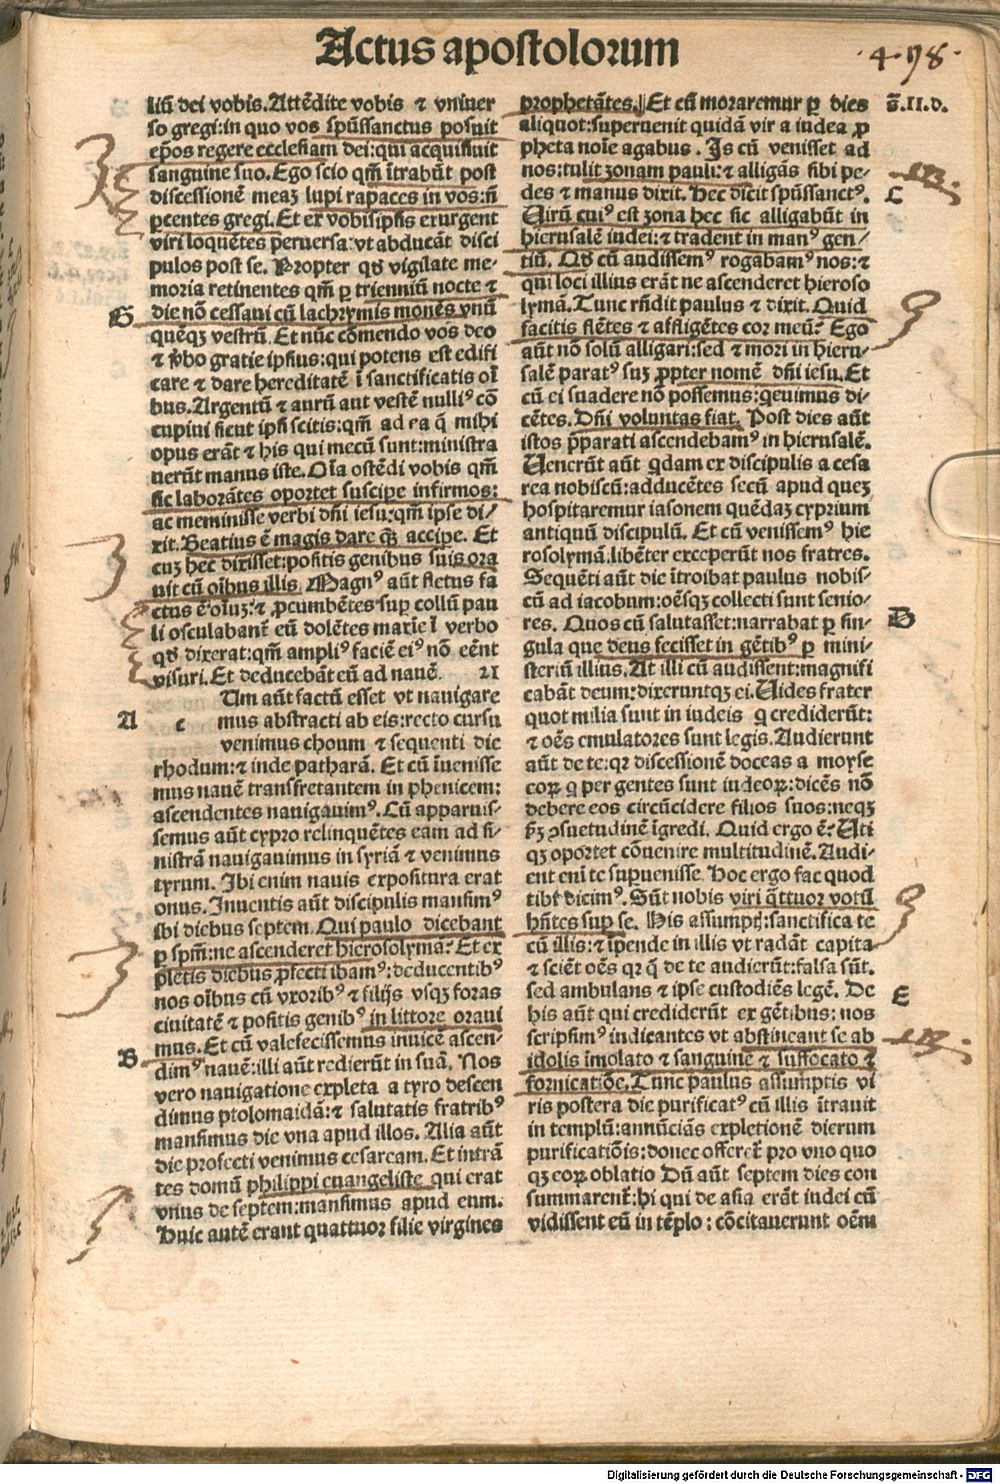 Actus apostolorum
·498·
liū dei vobis. Attēdite vobis ⁊ vniuer
so gregi: in quo vos spūssanctus posuit
ep̄os regere ecclesiam dei: qui acquisiuit
sanguine suo. Ego scio qm̄ ītrabūt post
discessionē meaꝫ lupi rapaces in vos: nō
ꝑcentes gregi. Et ex vobisipsis exurgent
viri loquētes peruersa: vt abducāt disci
pulos post se. Propter qd̄ vigilate me-
moria retinentes qm̄ ꝑ trienniū nocte ⁊
G
die nō cessaui cū lachrymis monēs vnū
quēqꝫ vestrū. Et nūc cōmendo vos deo
⁊ v̄bo gratie ipsius: qui potens est edifi
care ⁊ dare hereditatē ī sanctificatis oī
bus. Argentū ⁊ aurū aut vestē nulliꝰ cō
cupiui sicut ipsi scitis: qm̄ ad ea q̄ mihi
opus erāt ⁊ his qui mecū sunt: ministra
uerūt manus iste. Oīa ostēdi vobis qm̄
sic laborātes oportet suscipe infirmos:
ac meminisse verbi dn̄i iesu: qm̄ ipse di/
xit. Beatius ē magis dare q̄ꝫ accipe. Et
cuꝫ hec dixisset: positis genibus suis ora
uit cū oībus illis. Magnꝰ aūt fletus fa
ctus ē oīuꝫ: ⁊ ꝓcumbētes sup collū pau
li osculabant̄ eū dolētes maxīe ī verbo
qd̄ dixerat: qm̄ ampliꝰ faciē eiꝰ nō eēnt
visuri. Et deducebāt eū ad nauē. 21
Um aūt factū esset vt nauigare
A c mus abstracti ab eis: recto cursu
venimus choum ⁊ sequenti die
rhodum: ⁊ inde patharā. Et cū īuenisse
mus nauē transfretantem in phenicem:
ascendentes nauigauimꝰ. Cū apparuis-
semus aūt cypro relinquētes eam ad si-
nistrā nauigauimus in syriā ⁊ venimus
tyrum. Ibi enim nauis expositura erat
onus. Inuentis aūt discipulis mansimꝰ
ibi diebus septem. Qui paulo dicebant
ꝑ spm̄: ne ascenderet hierosolymā. Et ex
pletis diebus ꝓfecti ibamꝰ: deducentibꝰ
nos oībus cū vxoribꝰ ⁊ filijs vsqꝫ foras
ciuitatē ⁊ positis genibꝰ in littore oraui
mus. Et cū valefecissemus inuicē ascen-
B
dimꝰ nauē: illi aūt redierūt in suā. Nos
vero nauigatione expleta a tyro descen
dimus ptolomaidā: ⁊ salutatis fratribꝰ
mansimus die vna apud illos. Alia aūt
die profecti venimus cesaream. Et intrā
tes domū philippi euangeliste qui erat
vnus de septem: mansimus apud eum.
Huic autē erant quattuor filie virgines
prophetātes. Et cū moraremur ꝑ dies
ā.II.d.
aliquot: superuenit quidā vir a iudea ꝓ
pheta noīe agabus. Is cū venisset ad
nos: tulit zonam pauli: ⁊ alligās sibi pe-
des ⁊ manus dixit. Hec dīcit spūssanctꝰ.
C
Uirū cuiꝰ est zona hec sic alligabūt in
hierusalē iudei: ⁊ tradent in manꝰ gen/
tiū. Qd̄ cū audissemꝰ rogabamꝰ nos: ⁊
qui loci illius erāt ne ascenderet hieroso
lymā. Tunc rn̄dit paulus ⁊ dixit. Quid
facitis flētes ⁊ affligētes cor meū? Ego
aūt nō solū alligari: sed ⁊ mori in hieru-
salē paratꝰ suꝫ ꝓpter nomē dn̄i iesu. Et
cū ei suadere nō possemus: qeuimus di-
cētes. Dn̄i voluntas fiat. Post dies aūt
istos p̄parati ascendebamꝰ in hierusalē.
Uenerūt aūt qdam ex discipulis a cesa
rea nobiscū: adducētes secū apud queꝫ
hospitaremur iasonem quēdaꝫ cyprium
antiquū discipulū. Et cū venissemꝰ hie
rosolymā. libēter exceperūt nos fratres.
Sequēti aūt die ītroibat paulus nobis-
cū ad iacobum: oēsqꝫ collecti sunt senio-
res. Quos cū salutasset: narrabat ꝑ sin-
D
gula que deus fecisset in gētibꝰ ꝑ mini-
steriū illius. At illi cū audissent: magnifi
cabāt deum: dixeruntqꝫ ei. Uides frater
quot milia sunt in iudeis q crediderūt:
⁊ oēs emulatores sunt legis. Audierunt
aūt de te: qꝛ discessionē doceas a moyse
eoꝝ q per gentes sunt iudeoꝝ: dicēs nō
debere eos circūcidere filios suos: neqꝫ
ẜm ꝯsuetudinē īgredi. Quid ergo ē? Uti
qꝫ oportet cōuenire multitudinē. Audi-
ent eni te supuenisse. Hoc ergo fac quod
tibi dicimꝰ. Sūt nobis viri q̄ttuor votū
hn̄tes sup se. His assumptꝭ: sanctifica te
cū illis: ⁊ īpende in illis vt radāt capita
⁊ sciēt oēs qꝛ q̄ de te audierūt: falsa sūt.
sed ambulans ⁊ ipse custodiēs legē. De
E
his aūt qui crediderūt ex gētibus: nos
scripsimꝰ iudicantes vt abstineant se ab
idolis īmolato ⁊ sanguine ⁊ suffocato ⁊
fornicatiōe. Tunc paulus assumptis vi
ris postera die purificatꝰ cū illis ītrauit
in templū: annūciās expletionē dierum
purificatiōis: donec offeret̄ pro vno quo
qꝫ eoꝝ oblatio Dū aūt septem dies con
summarent̄: hi qui de asia erāt iudei cū
vidissent eū in tēplo: cōcitauerunt oēm
Digitalisierung gefördert durch die Deutsche Forschungsgemeinschaft - DFG